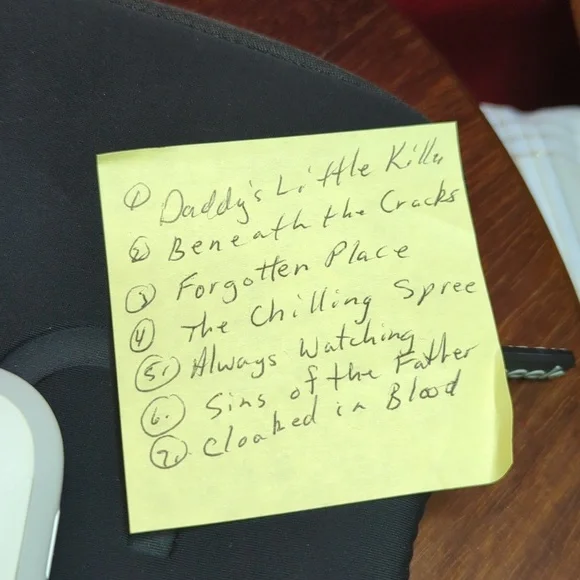 ① Daddy's Little Killer
② Beneath the Cracks
③ Forgotten Place
④ The Chilling Spree
⑤. Always Watching
⑥. Sins of the Father
⑦. Cloaked in Blood